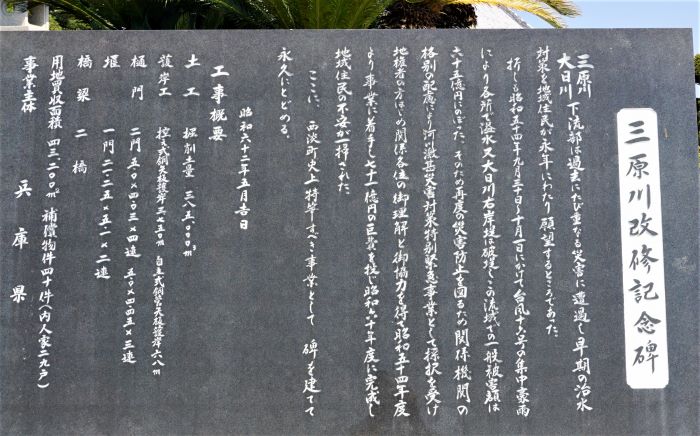 三原川改修記念碑
三原川
大日川 下流部は過去にたび重なる災害に遭遇し早期の治水
対策を地域住民が永年にわたり願望するところであった。
折しも昭和五十四年九月三十日〜十月一日にかけて台風十六号の集中豪雨
により各所で溢水又大日川右岸堤は破堤しこの流域での一般被害額は
六十五億円にのぼった。そのため再度の災害防止を図るため関係機関の
格別の配慮により河川激甚災害対策特別緊急事業として採択を受け
地権者の方はじめ関係各位の御理解と御協力を得て昭和五十四年度
より事業に着手し七十一億円の巨費を投じ昭和六十年度に完成し
地域住民の不安が一掃された。
ここに、西淡町史上特筆すべき事業として 碑を建てて
永久にとどめる。
昭和六十二年五月吉日
工事概要
土工 掘削土量 三八五、〇〇〇m³
護岸工 控え式鋼矢板護岸三、七五〇m 自立式鋼管矢板護岸六八m
樋門 二門 五・〇×四・〇三×四連 五・〇×四・四五×三連
堰 一門 二・二五×五・一×二連
橋梁 二橋
用地買収面積 四三、二〇〇m² 補償物件四十件(内人家二九戸)
事業主体 兵庫県